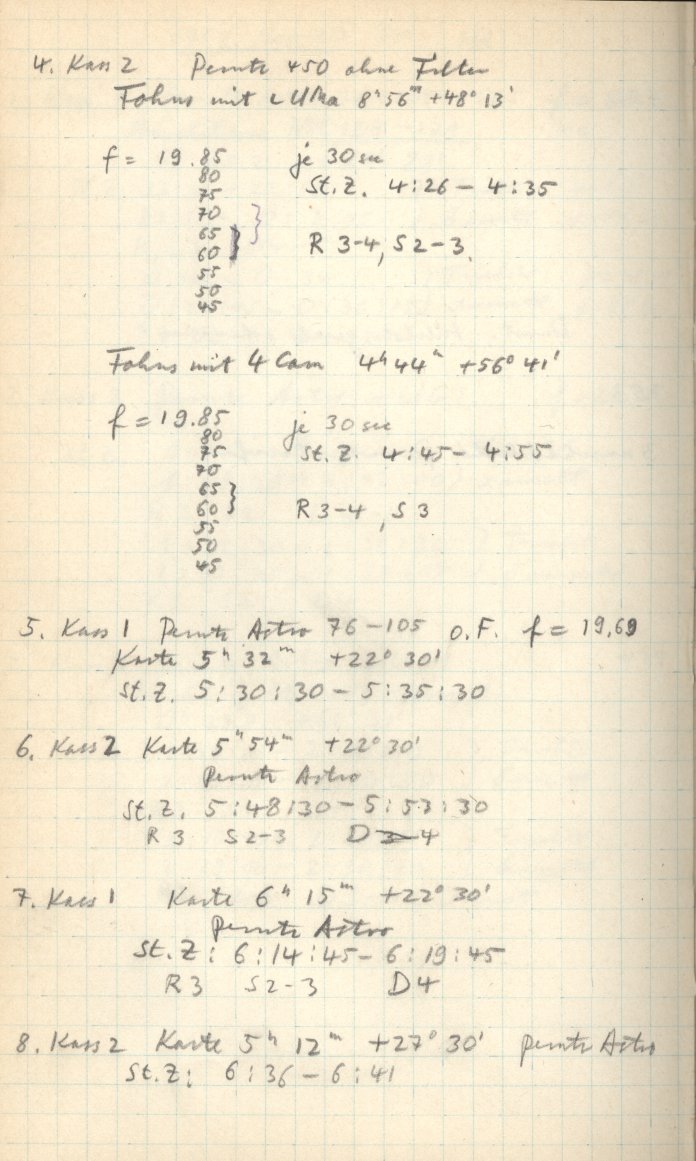 4. Kass 2 Perutz 450 ohne Filter
Fokus mit ι UMa 8ʰ56ᵐ +48°13'
f = 19.85 je 30 sec
80 St.Z. 4:26 – 4:35
75
70
65 R 3-4, S 2-3.
60
55
50
45
Fokus mit 4 Cam 4ʰ44ᵐ +56°41'
f = 19.85 je 30 sec
80
75 St.Z. 4:45 – 4:55
70
65
60 R 3-4, S 3
55
50
45
5. Kass 1 Perutz Astro 76-105 o.F. f = 19,69
Karte 5ʰ 32ᵐ +22° 30'
St.Z. 5:30:30 – 5:35:30
6. Kass 2 Karte 5ʰ 54ᵐ +22° 30'
Perutz Astro
St.Z. 5:48:30 – 5:53:30
R 3 S 2-3 D 3-4
7. Kass 1 Karte 6ʰ 15ᵐ +22° 30'
Perutz Astro
St.Z: 6:14:45 – 6:19:45
R 3 S 2-3 D 4
8. Kass 2 Karte 5ʰ 12ᵐ +27° 30' Perutz Astro
St.Z: 6:36 – 6:41